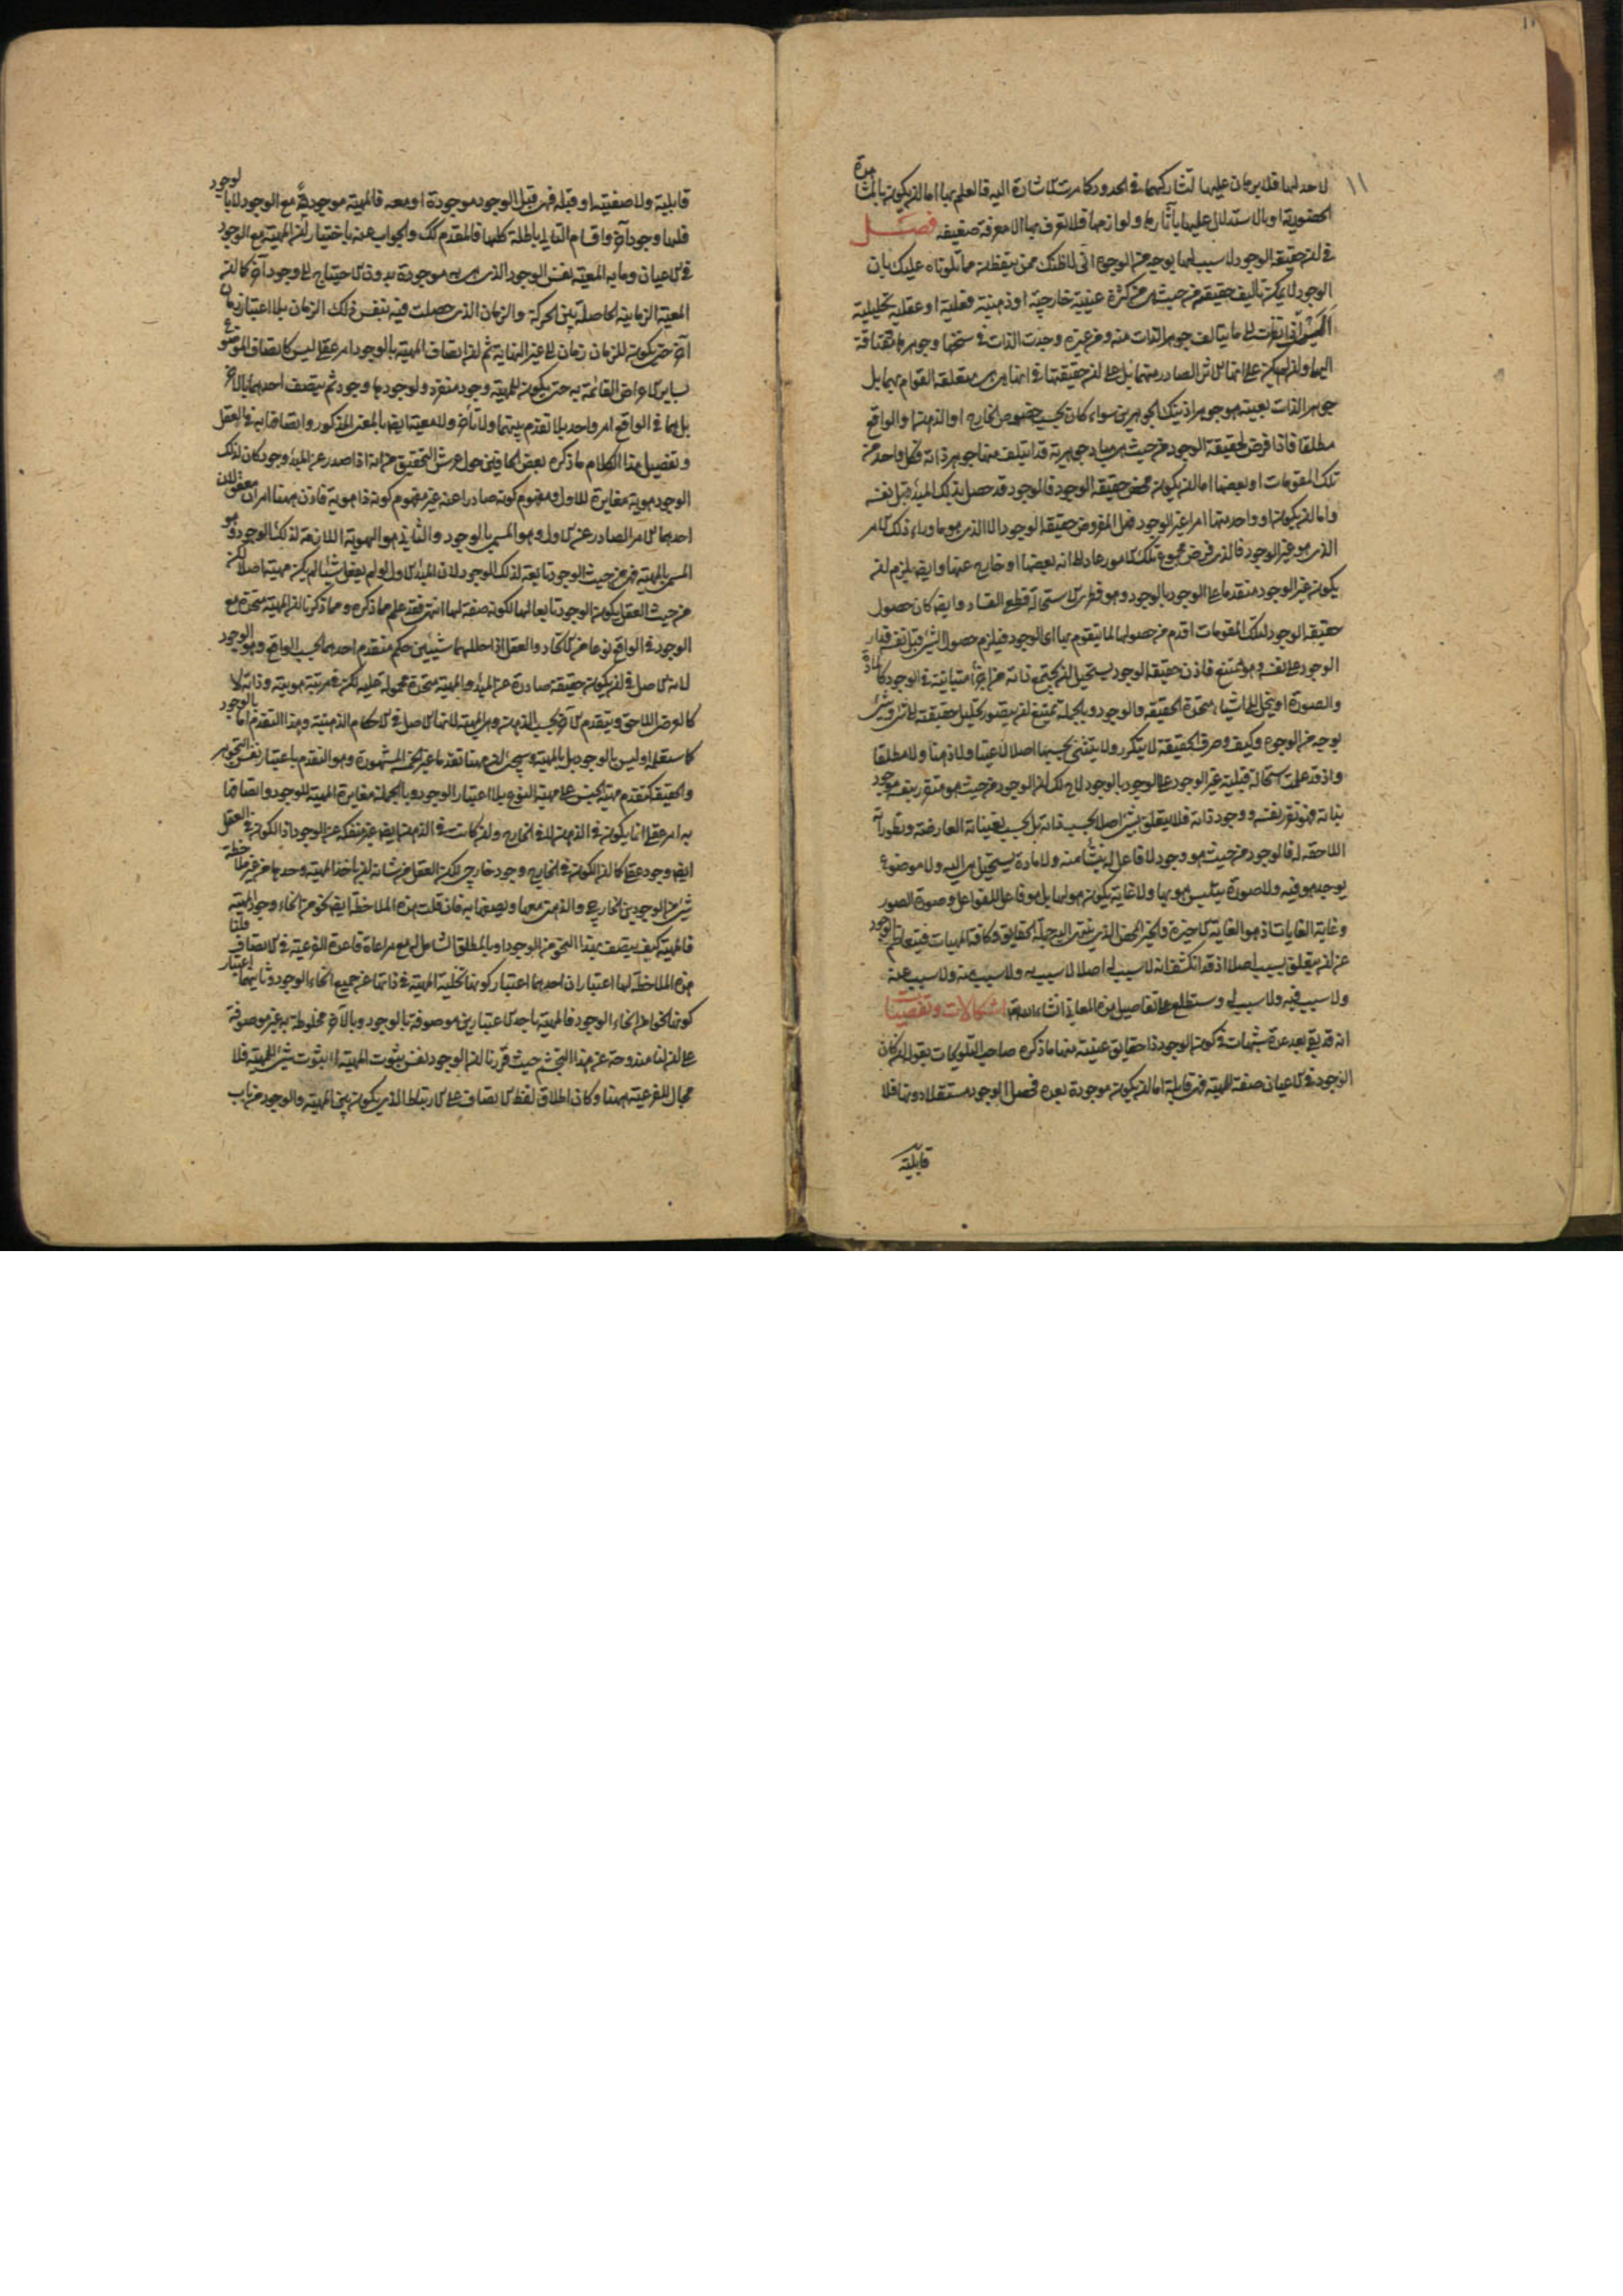 ١١
لا حد لها فلا برهان عليها لتشاركهما في الحدود كما مرت الاشارة اليه فالعلم بها اما ان يكون بالمشاهدة
الحضورية او بالاستدلال عليها بآثارها ولوازمها فلا تعرف بها الا معرفة ضعيفة فصل
في ان حقيقة الوجود لا سبب لها بوجه من الوجوه انى لاظنك ممن يتفطن مما تلوناه عليك بان
الوجود لا يمكن تأليف حقيقته من حيث هي من كثرة عينية خارجية او ذهنية فعلية او عقلية تحليلية
اذا نظرت الى ما يتألف جوهر الذات منه ومن غيره وجدت الذات في سنخها وجوهرها مفتاقة
اليهما وان لم يكن على انها الاثر الصادر منهما بل على ان حقيقتها في انها هي هي متعلقة القوام بهما بل
جوهر الذات بعينه هو جوهرا ذينك الجوهرين سواء كان بحسب خصوص الخارج او الذهن او الواقع
مطلقا فاذا فرض لحقيقة الوجود من حيث هي مبادي جوهرية قد ائتلف منها جوهر ذاته فكل واحد من
تلك المقومات او بعضها اما ان يكون محض حقيقة الوجود فالوجود قد حصل بذلك المبدء قبل نفسه
واما ان يكون او واحد منها امرا غير الوجود فهل المفروض حقيقة الوجود الا الذي هو ما وراء ذلك الامر
الذي هو غير الوجود فالذي فرض مجموع تلك الامور عاد الى انه بعضها او خارج عنها وايضا يلزم ان
يكون غير الوجود متقدما على الوجود بالوجود وهو فطري الاستحالة قطعي الفساد وايضا كان حصول
حقيقة الوجود لتلك المقومات اقدم من حصولها لما يتقوم بها اى الوجود فيلزم حصول الشيء قبل نفسه فدار
الوجود على نفسه وهو ممتنع فاذن حقيقة الوجود يستحيل ان يجتمع ذاته من اجزاء متباينة في الوجود كالمادة
والصورة او ينحل الى اشياء متحدة الحقيقة والوجود وبالجملة يمتنع ان يتصور تحليل حقيقته الى شيء وشيء
بوجه من الوجوه وكيف وصرف الحقيقة لا يتكرر ولا يتثنى بحسبها اصلا لا عينا ولا ذهنا ولا مطلقا
واذ قد علمت استحالة قبلية غير الوجود على الوجود بالوجود لاح لك ان الوجود من حيث هو متقرر بنفسه موجود
بذاته فهو تقرر نفسه ووجود ذاته فلا يتعلق بشيء اصلا بحسب ذاته بل بحسب تعيناته العارضة وتطوراته
اللاحقة له فالوجود من حيث هو وجود لا فاعل له ينشأ منه ولا مادة يستحيل هي اليه ولا موضوع
يوجد هو فيه ولا صورة يتلبس هو بها ولا غاية يكون هو لها بل هو فاعل الفواعل وصورة الصور
وغاية الغايات اذ هو الغاية الاخيرة والخير المحض الذي ينتهي اليه جملة الحقايق وكافة المهيات فيتعاظم الوجود
عن ان يتعلق بسبب اصلا اذ قد انكشف انه لا سبب له اصلا لا سبب به ولا سبب منه ولا سبب عنه
ولا سبب فيه ولا سبب له وستطلع على تفاصيل هذه المعاني انشاء الله تع اشكالات وتفصيات
انه قد بقى بعد عدة شبهات في كون الوجود ذا حقايق عينية منها ما ذكره صاحب التلويحات بقوله ان كان
الوجود في الاعيان صفة للمهية فهى قابلة اما ان يكون موجودة بعده فحصل الوجود مستقلا دونها فلا
قابلية
قابلية ولا صفتية او قبله فهى قبل الوجود موجودة او معه فالمهية موجودة مع الوجود لا بالوجود
فلها وجود آخر واقسام التالى باطلة كلها فالمقدم كذلك والجواب عنه باختيار ان المهية مع الوجود
في الاعيان وما به المعية نفس الوجود الذي هي به موجودة بدون الاحتياج الى وجود آخر كما ان
المعية الزمانية الحاصلة بين الحركة والزمان الذي حصلت فيه بنفس ذلك الزمان بلا اعتبار زمان
آخر حتى يكون للزمان زمان الى غير النهاية ثم ان اتصاف المهية بالوجود امر عقلي ليس كاتصاف الموضوع
بساير الاعراض القائمة به حتى يكون للمهية وجود منفرد ولوجودها وجود ثم يتصف احدهما بالاخر
بل هما في الواقع امر واحد بلا تقدم بينهما ولا تأخر ولا معية ايضا بالمعنى المذكور واتصافها به في العقل
وتفصيل هذا الكلام ما ذكره بعض الحافين حول عرش التحقيق من انه اذا صدر عن المبدء وجود كان لذلك
الوجود هوية مغايرة للاول ومفهوم كونه صادرا عنه غير مفهوم كونه ذا هوية فاذن ههنا امران معقولان
احدهما الامر الصادر عن الاول وهو المسمى بالوجود والثاني هو الهوية اللازمة لذلك الوجود وهو
المسمى بالمهية فهي من حيث الوجود تابعة لذلك الوجود لان المبدء الاول لو لم يفعل شيئا لم يكن مهية اصلا لكن
من حيث العقل يكون الوجود تابعا لها لكونه صفة لها انتهى فقد علم مما ذكره ومما ذكرنا ان المهية متحدة مع
الوجود في الواقع نوعا من الاتحاد والعقل اذا حللهما شيئين حكم بتقدم احدهما بحسب الواقع وهو الوجود
لانه الاصل في ان يكون حقيقة صادرة عن المبدء والمهية متحدة محمولة عليه لكن في مرتبة هويته وذاته لا
كالعرض اللاحق ويتقدم الآخر بحسب الذهن وهي المهية لانها الاصل في الاحكام الذهنية وهذا التقدم اما بالوجود
كما ستعلمه او ليس بالوجود بل بالمهية وسيجيء ان ههنا تقدما غير الخمسة المشهورة وهو التقدم باعتبار نفس التجوهر
والحقيقة كتقدم مهية الجنس على مهية النوع بلا اعتبار الوجود وبالجملة مغايرة المهية للوجود واتصافها
به امر عقلي انما يكون في الذهن لا في الخارج وان كانت في الذهن ايضا غير منفكة عن الوجود اذ الكون في العقل
ايضا وجود عقلي كما ان الكون في الخارج وجود خارجي لكن العقل من شانه ان ياخذ المهية وحدها من غير ملاحظة
شيء من الوجودين الخارجي والذهني معها ويصفها به فان قلت هذه الملاحظة ايضا نحو من انحاء وجود المهية
فالمهية كيف يتصف بهذا النحو من الوجود او بالمطلق الشامل له مع مراعاة قاعدة الفرعية في الاتصاف قلنا
هذه الملاحظة لها اعتباران احدهما اعتبار كونها تخلية المهية في ذاتها عن جميع انحاء الوجود وثانيهما اعتبار
كونها نحوا من انحاء الوجود فالمهية باحد الاعتبارين موصوفة بالوجود وبالآخر مخلوطة به غير موصوفة
على ان لنا مندوحة عن هذا التجشم حيث قررنا ان الوجود نفس ثبوت المهية لا ثبوت شيء للمهية فلا
مجال للفرعية ههنا وكان اطلاق لفظ الاتصاف على الارتباط الذي يكون بين المهية والوجود من باب